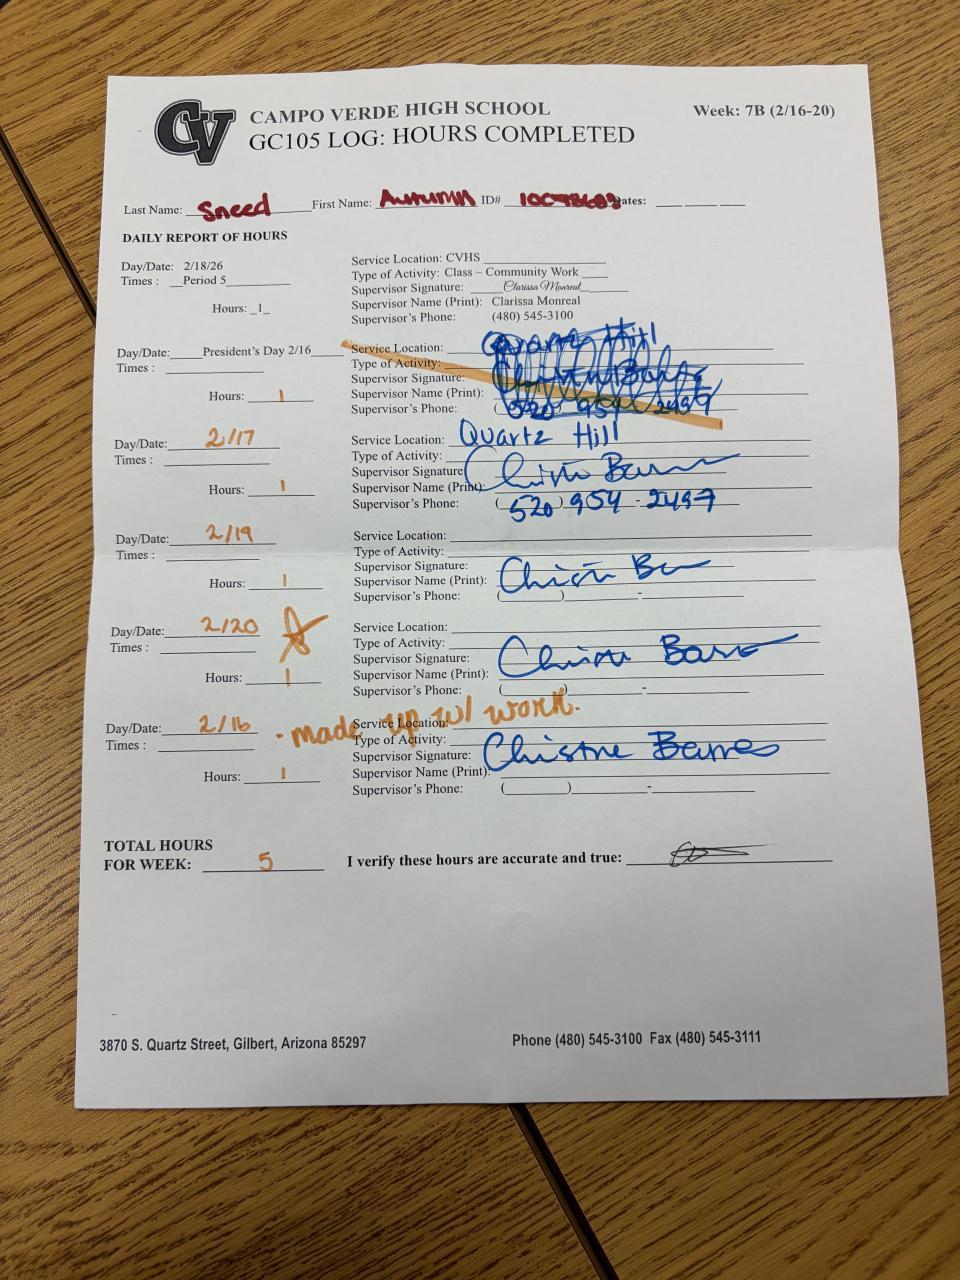 CV
CAMPO VERDE HIGH SCHOOL
Week: 7B (2/16-20)
GC105 LOG: HOURS COMPLETED
Last Name: Sneed First Name: Autumn ID# Dates:
DAILY REPORT OF HOURS
Day/Date: 2/18/26
Times : Period 5
Hours: 1
Service Location: CVHS
Type of Activity: Class – Community Work
Supervisor Signature: Clarissa Monreal
Supervisor Name (Print): Clarissa Monreal
Supervisor's Phone: (480) 545-3100
Day/Date: President's Day 2/16
Times :
Hours: 1
Service Location: Quartz Hill
Type of Activity:
Supervisor Signature:
Supervisor Name (Print):
Supervisor's Phone: (520) 954 2497
Day/Date: 2/17
Times :
Hours: 1
Service Location: Quartz Hill
Type of Activity:
Supervisor Signature:
Supervisor Name (Print):
Supervisor's Phone: (520) 954-2497
Day/Date: 2/19
Times :
Hours: 1
Service Location:
Type of Activity:
Supervisor Signature:
Supervisor Name (Print):
Supervisor's Phone: ( ) -
Day/Date: 2/20
Times :
Hours: 1
Service Location:
Type of Activity:
Supervisor Signature:
Supervisor Name (Print):
Supervisor's Phone: ( ) -
Day/Date: 2/16 - made up w/ work.
Times :
Hours: 1
Service Location:
Type of Activity:
Supervisor Signature: Christine Barnes
Supervisor Name (Print):
Supervisor's Phone: ( ) -
TOTAL HOURS
FOR WEEK: 5
I verify these hours are accurate and true:
3870 S. Quartz Street, Gilbert, Arizona 85297
Phone (480) 545-3100 Fax (480) 545-3111